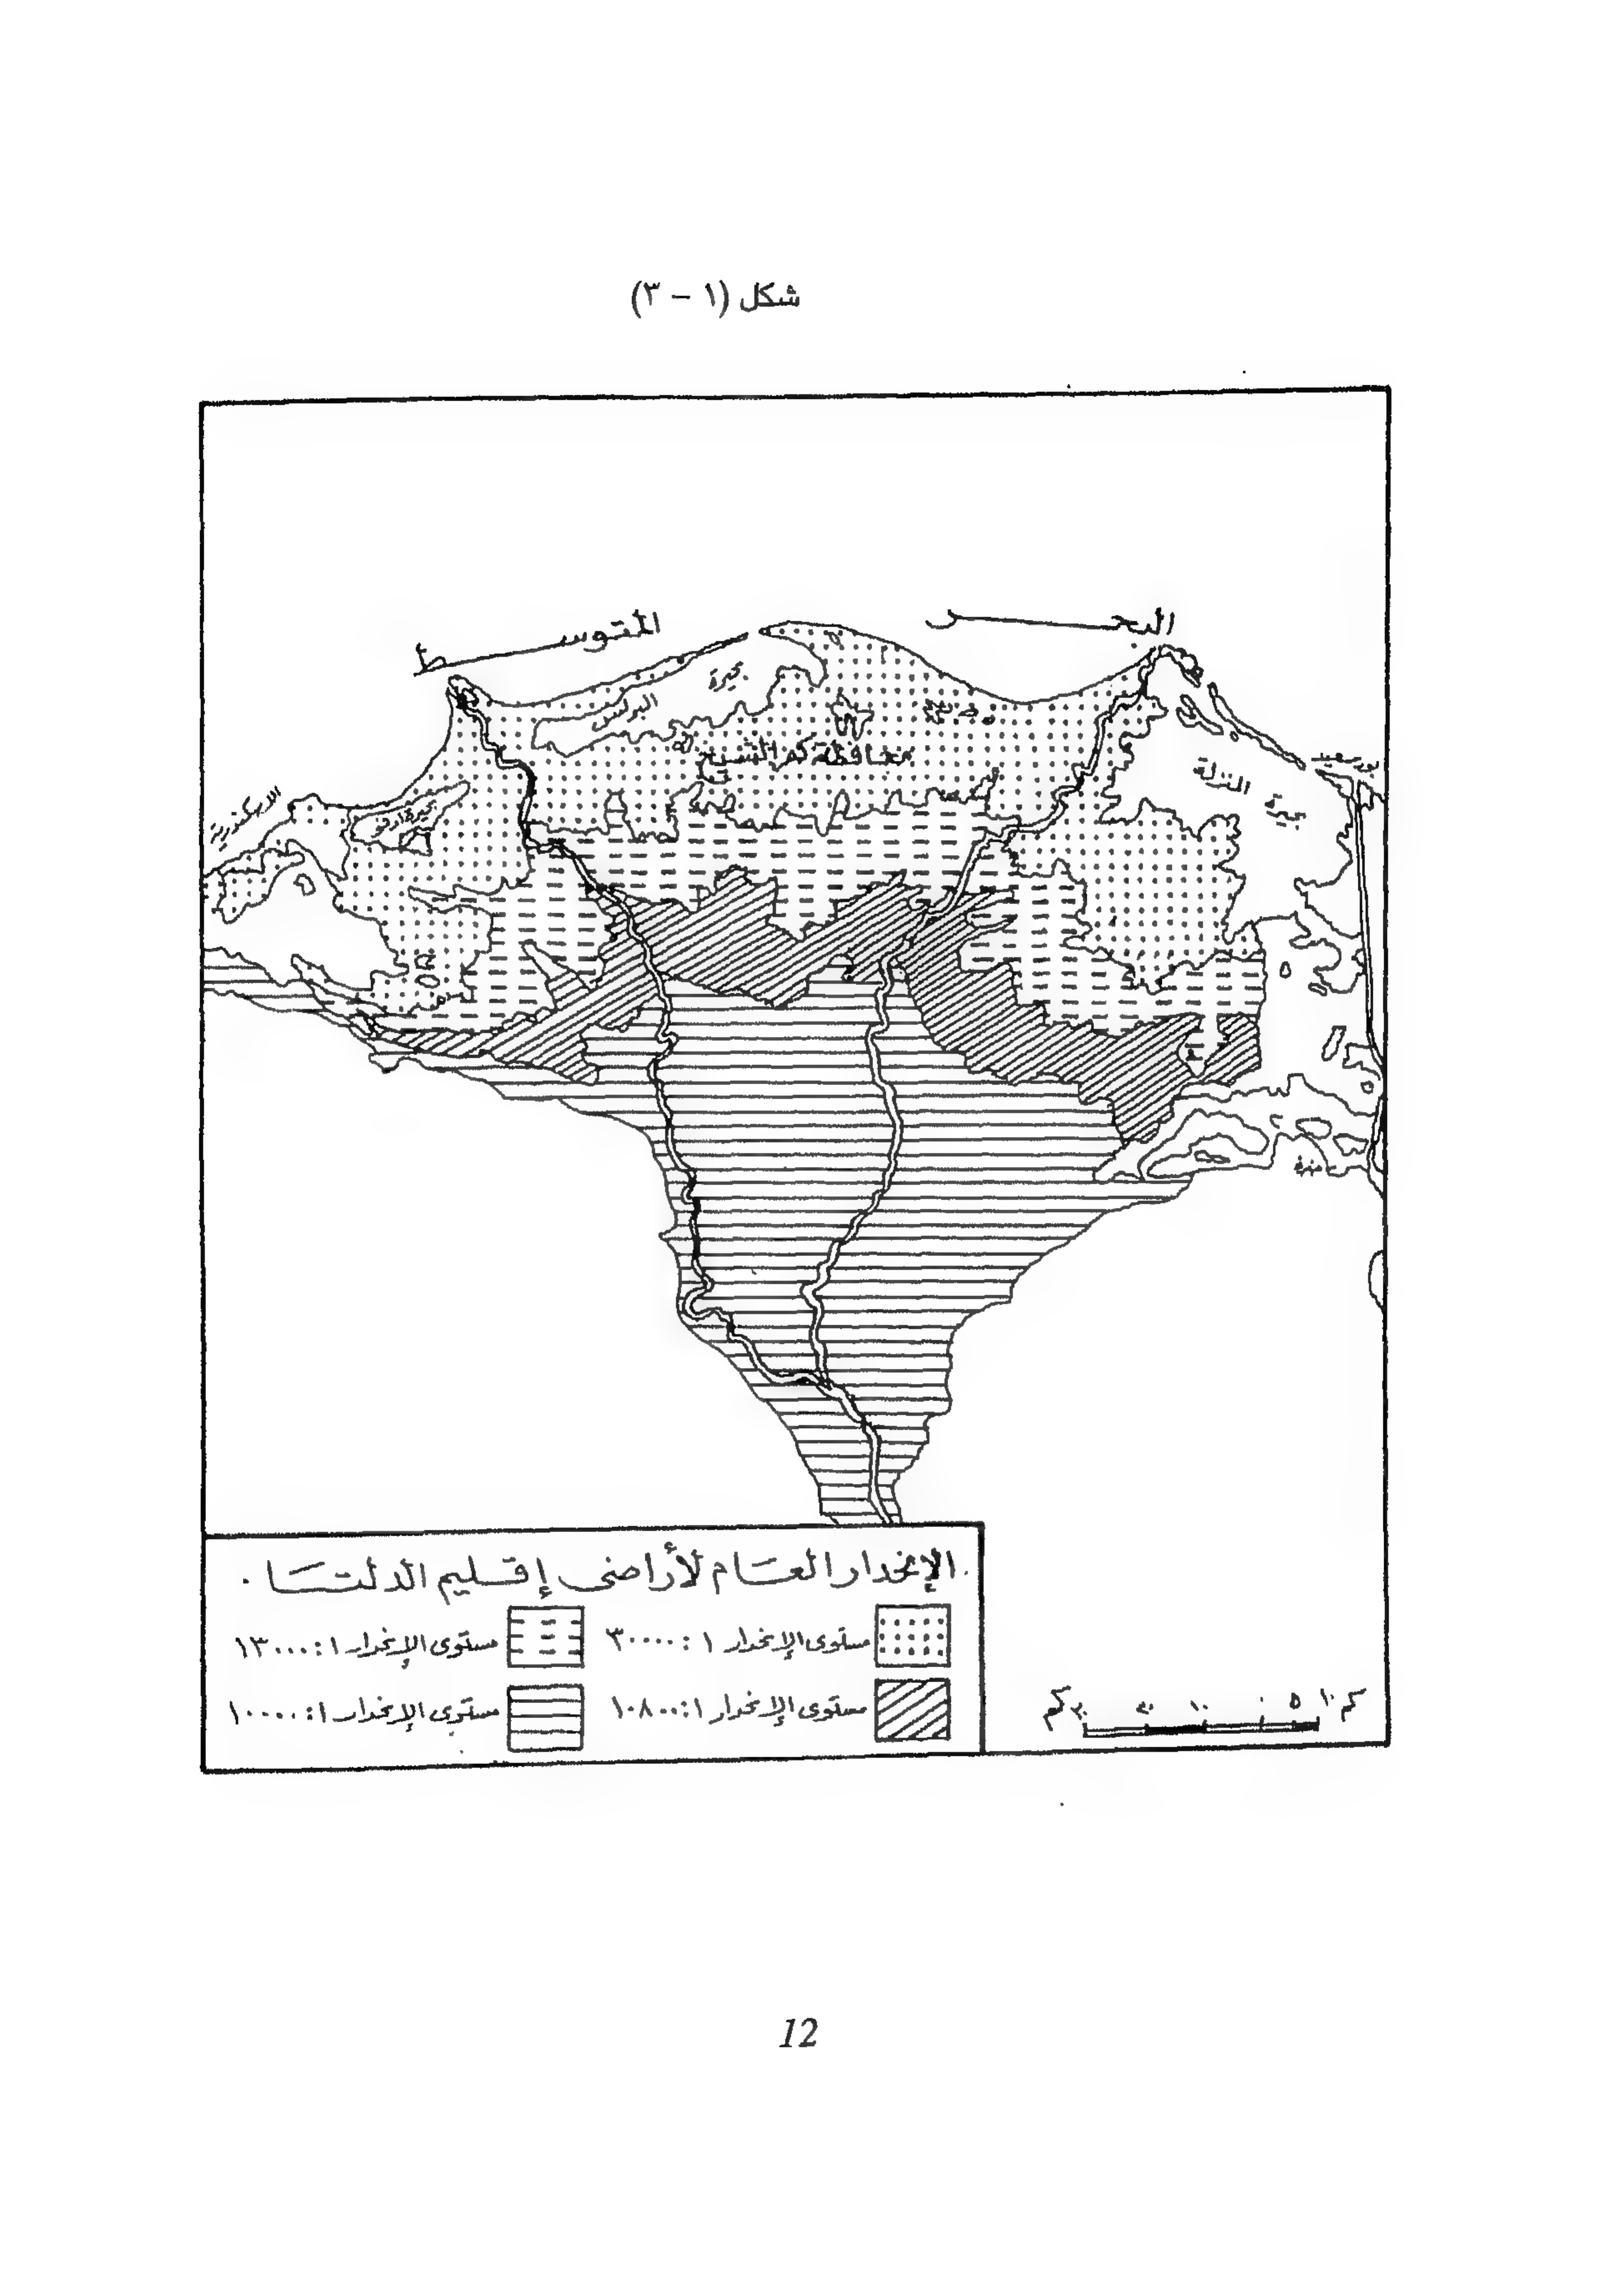 شكل (١ - ٣)
البحر
المتوسط
بحيرة
البرلس
محافظة كفر الشيخ
بحيرة
المنزلة
بورسعيد
الاسكندرية
الإنحدار العام لأراضى إقليم الدلتا .
مستوى الإنحدار ١ : ٣٠٠٠٠
مستوى الإنحدار ١ : ١٣٠٠٠
مستوى الإنحدار ١ : ١٠٨٠٠
مستوى الإنحدار ١ : ١٠٠٠٠
كم ١٠ ٥ ٠ ١٠ ٢٠ ٣٠ كم
12